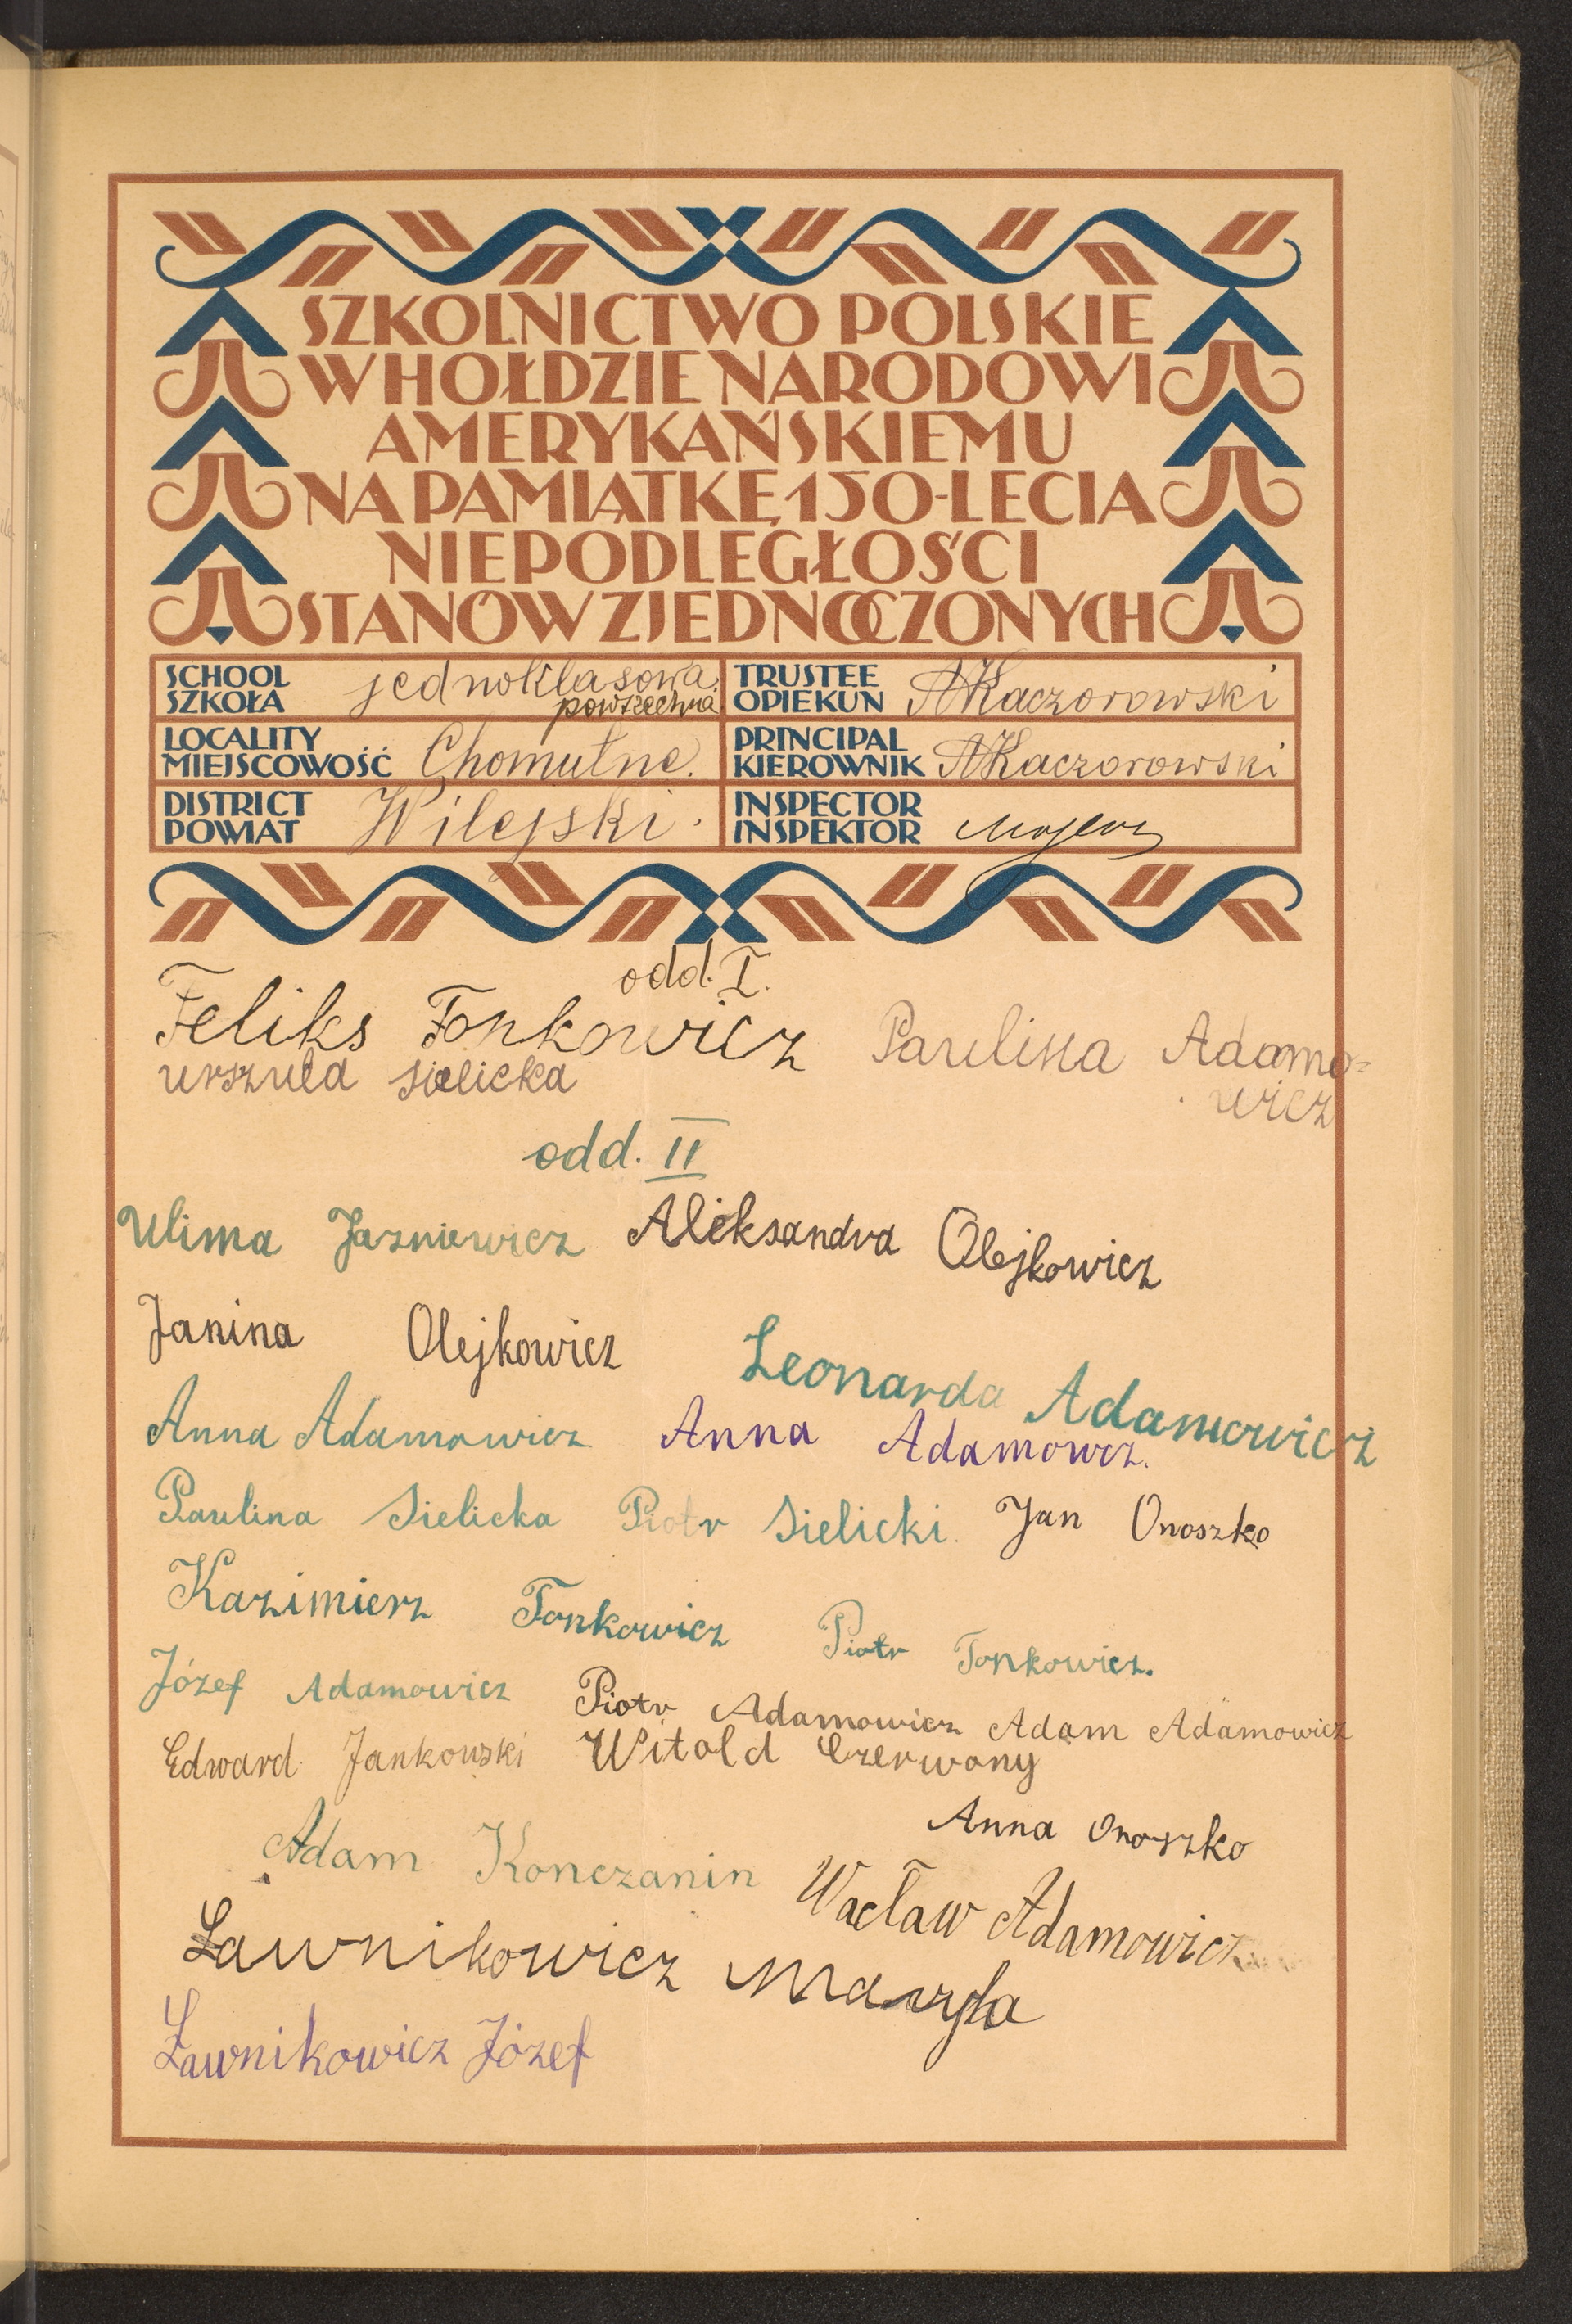 SZKOLNICTWO POLSKIE
W HOŁDZIE NARODOWI
AMERYKAŃSKIEMU
NA PAMIĄTKĘ 150-LECIA
NIEPODLEGŁOŚCI
STANÓW ZJEDNOCZONYCH
SCHOOL
SZKOŁA jednoklasowa powszechna
TRUSTEE
OPIEKUN AKaczorowski
LOCALITY
MIEJSCOWOŚĆ Chomutne.
PRINCIPAL
KIEROWNIK AKaczorowski
DISTRICT
POWIAT Wilejski.
INSPECTOR
INSPEKTOR
odd. I.
Feliks Tonkowicz Paulina Adamo=
wicz
urszula Sielicka
odd. II
Ulima Jazniewicz Aleksandra Olejkowicz
Janina Olejkowicz Leonarda Adamowicz
Anna Adamowicz Anna Adamowcz.
Paulina Sielicka Piotr Sielicki. Jan Onoszko
Kazimierz Tonkowicz Piotr Tonkowicz.
Józef Adamowicz Piotr Adamowicz Adam Adamowicz
Edward Jankowski Witold Czerwony
Anna Onoszko
Adam Konczanin Wacław Adamowicz
Ławnikowicz Maryla
Ławnikowicz Józef